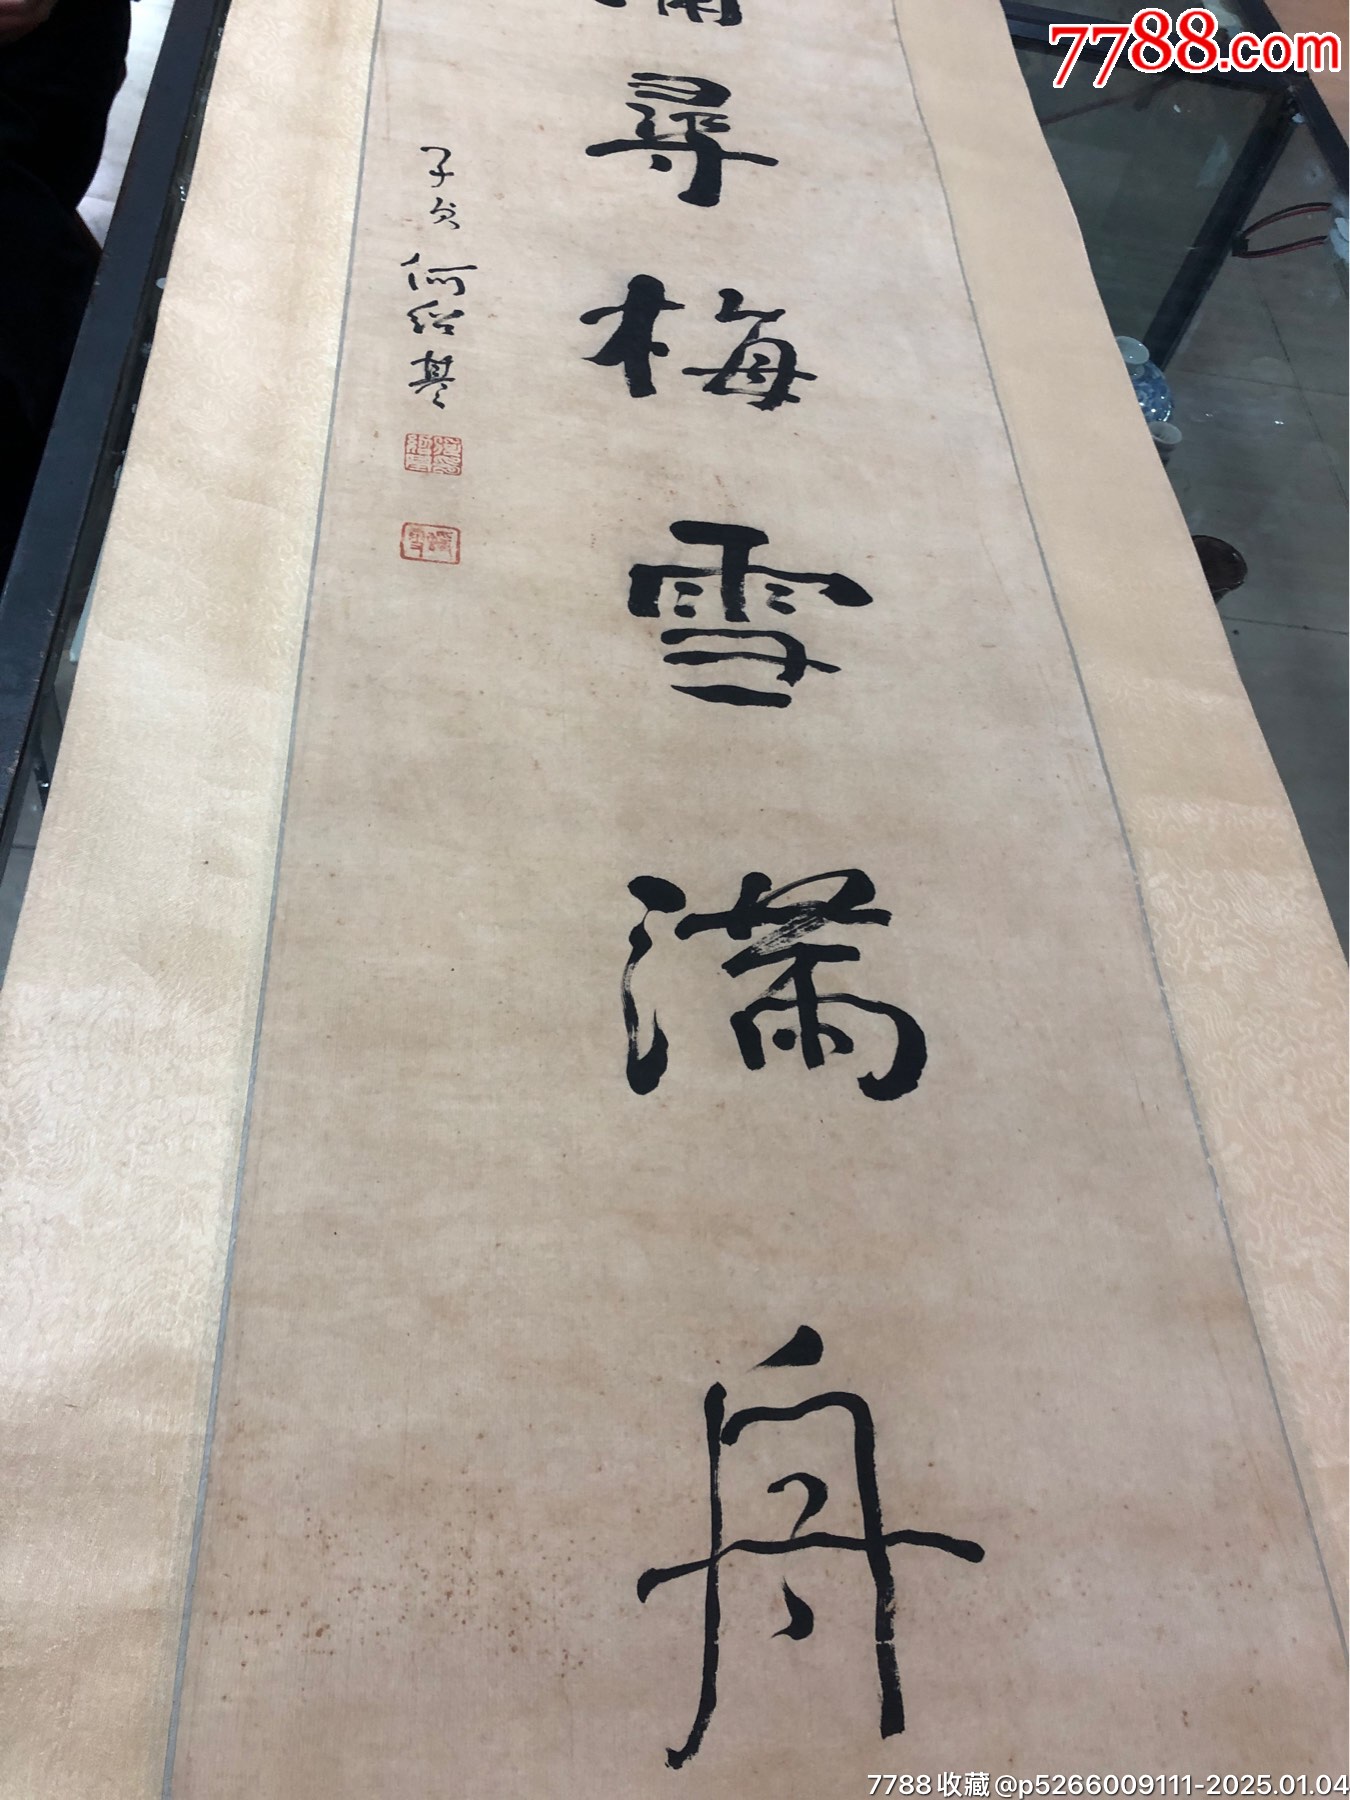 7788.com
尋梅雪滿舟
子貞何紹基
7788收藏@p5266009111-2025.01.04